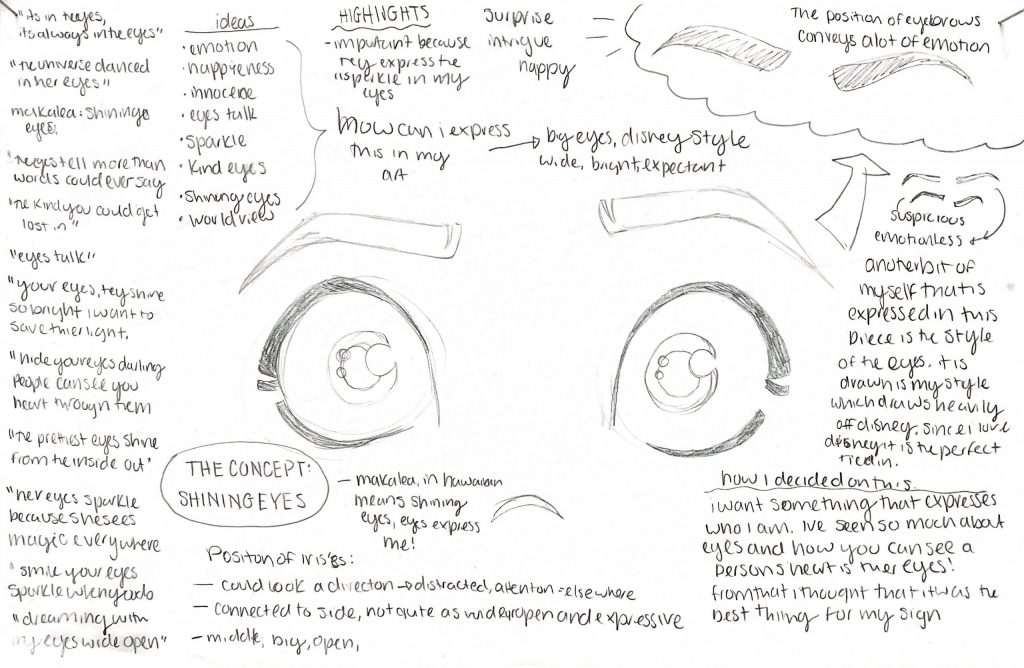 "its in the eyes,
its always in the eyes"
"the universe danced
in her eyes"
makalea: shining
eyes.
"the eyes tell more than
words could ever say
"the kind you could get
lost in"
"eyes talk"
"your eyes, they shine
so bright i want to
save their light.
"hide your eyes darling
people can see you
heart through them
"the prettiest eyes shine
from the inside out"
"her eyes sparkle
because she sees
magic everywhere
"smile your eyes
sparkle when you do
"dreaming with
my eyes wide open"
ideas
• emotion
• happieness
• innocence
• eyes talk
• sparkle
• kind eyes
• shining eyes
• world view
HIGHLIGHTS
- important because
they express the
sparkle in my
eyes
surprise
intrigue
happy
how can i express
this in my
art
by eyes, disney style
wide, bright, expectant
The position of eyebrows
conveys a lot of emotion
suspicious
emotionless
another bit of
myself that is
expressed in this
piece is the style
of the eyes. it is
drawn is my style
which draws heavily
off disney. since i love
disney it is the perfect
tied in.
THE CONCEPT:
SHINING EYES
- makalea, in hawaiian
means shining
eyes, eyes express
me!
Position of iris'es:
- could look a direction → distracted, attention = elsewhere
- connected to side, not quite as wide open and expressive
- middle, big, open,
how I decided on this.
i want something that expresses
who I am. Ive seen so much about
eyes and how you can see a
persons heart is their eyes!
from that i thought that it was the
best thing for my sign